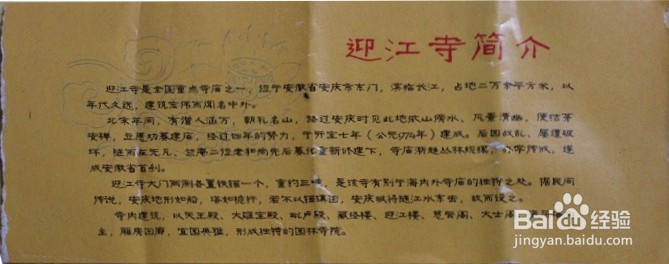 迎江寺简介
迎江寺是全国重点寺庙之一，位于安徽省安庆市东门，滨临长江，占地二万余平方米，以
年代久远，建筑宏伟而闻名中外。
北宋年间，有僧人涵万，朝礼名山，路过安庆时见此地依山傍水，风景清幽，便结茅
安禅，立愿劝募建庙，经过四年的努力，于开宝七年（公元974年）建成。后因战乱，屡遭破
坏，继而在无凡、竺庵二位老和尚先后募化重新修建下，寺庙渐趋丛林规模，办学传戒，遂
成安徽省首刹。
迎江寺大门两侧各置铁锚一个，重约三吨，是该寺有别于海内外寺庙的独特之处。据民间
传说，安庆地形如船，塔如桅杆，若不以锚镇固，安庆城将随江水东去，故而设之。
寺内建筑，以天王殿、大雄宝殿、毗卢殿、藏经楼、迎江楼、慈誉阁、大士阁
主，厢房回廊，宜园典雅，形成独特的园林寺院。
Baidu 经验
jingyan.baidu.com